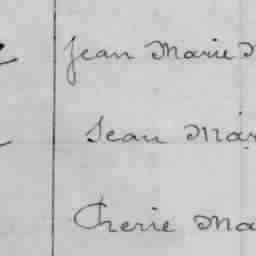 Jean Marie
Jean Mar
Cherie Ma